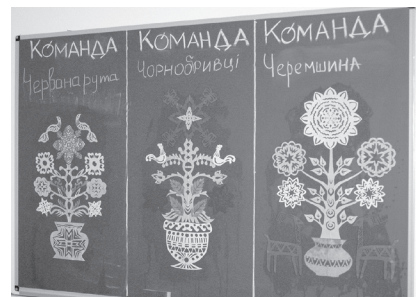 КОМАНДА
Червана рута
КОМАНДА
Чорнобривці
КОМАНДА
Черемшина